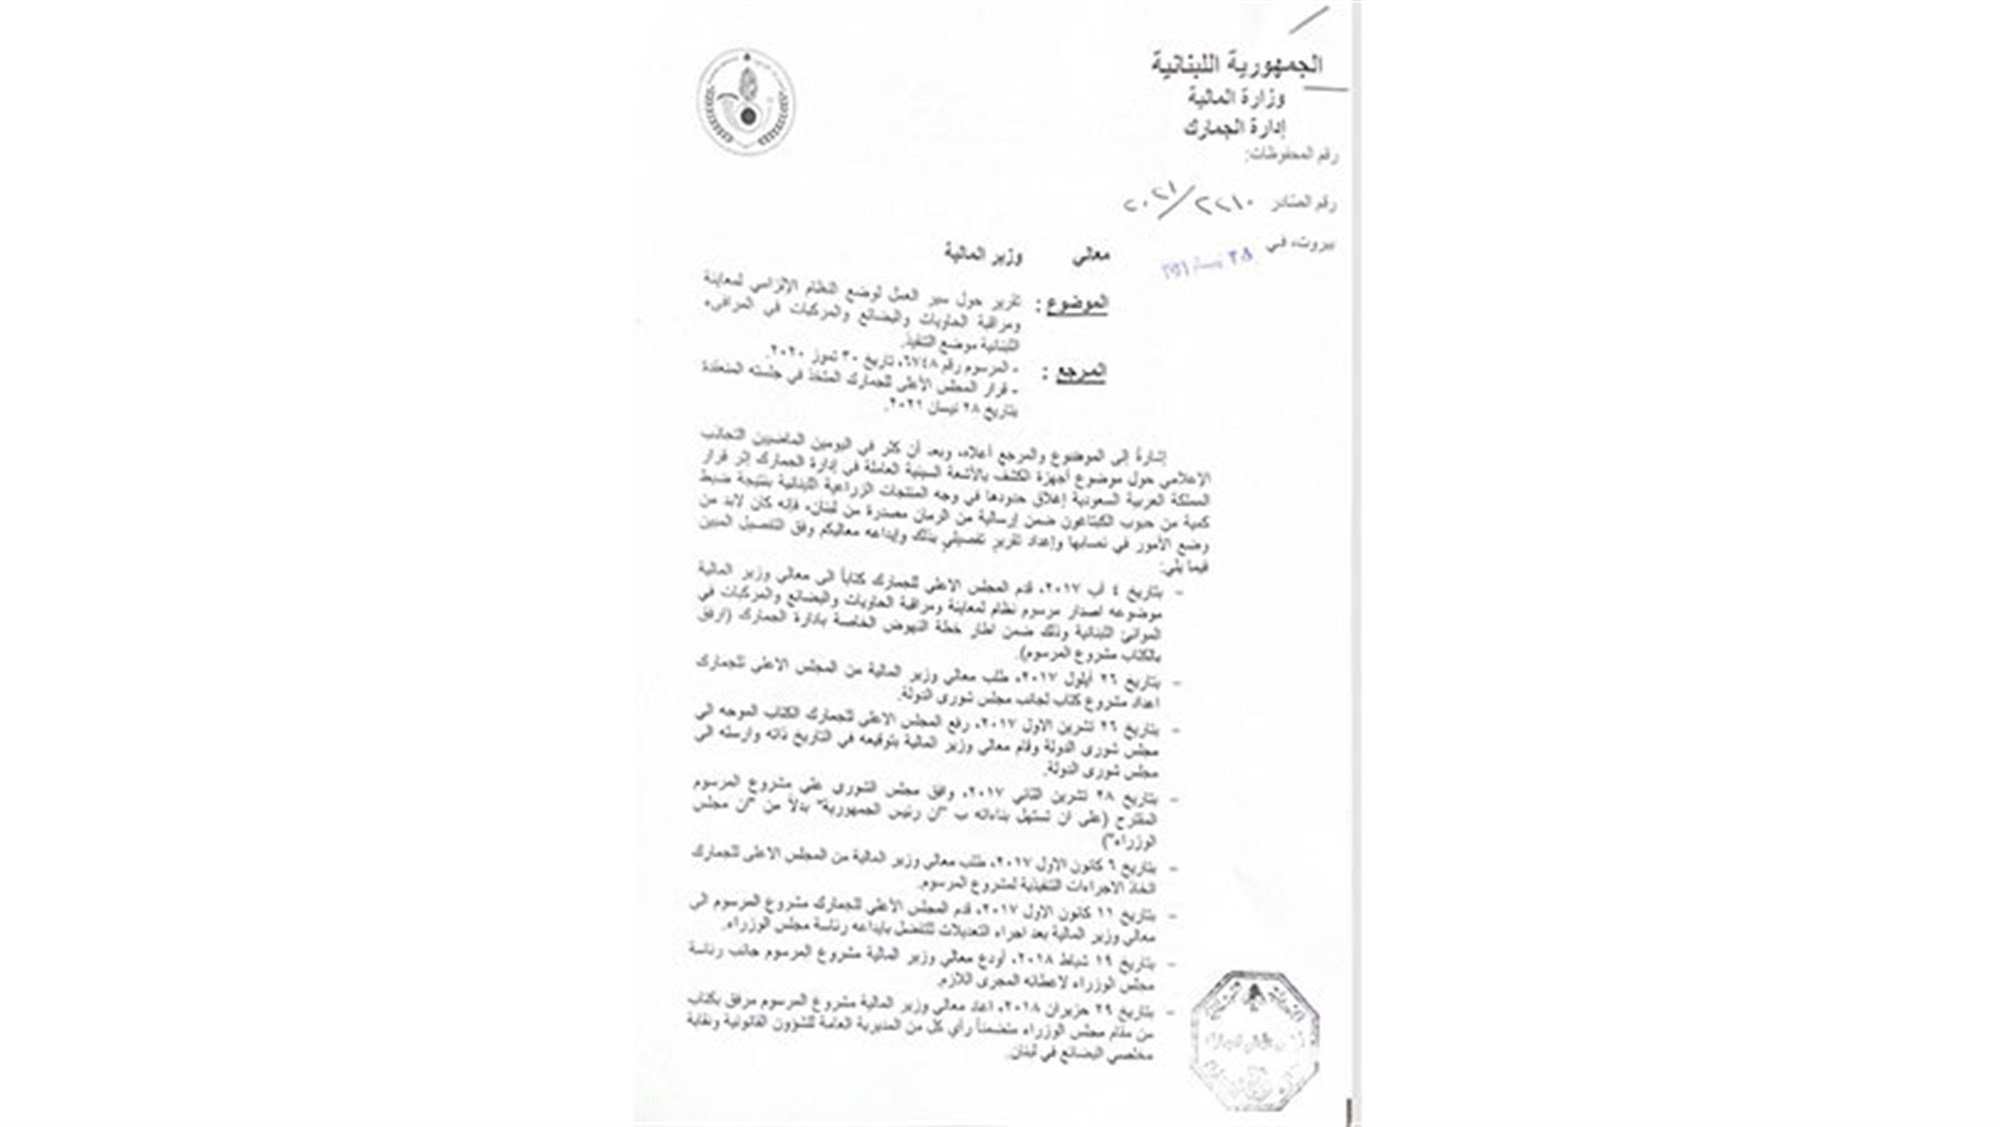 الجمهورية اللبنانية
وزارة المالية
إدارة الجمارك
رقم المحفوظات:
رقم الصادر ٢٢١٠/٢٠٢١
بيروت، في ٢٨ نيسان ٢٠٢١
معالي وزير المالية
الموضوع : تقرير حول سير العمل لوضع النظام الإلزامي لمعاينة
ومراقبة الحاويات والبضائع والمركبات في المرافىء
اللبنانية موضع التنفيذ.
المرجع : - المرسوم رقم ٦٧٤٨، تاريخ ٣٠ تموز ٢٠٢٠.
- قرار المجلس الأعلى للجمارك المتخذ في جلسته المنعقدة
بتاريخ ٢٨ نيسان ٢٠٢١.
إشارةً إلى الموضوع والمرجع أعلاه، وبعد أن كثر في اليومين الماضيين التجاذب
الإعلامي حول موضوع أجهزة الكشف بالأشعة السينية العاملة في إدارة الجمارك إثر قرار
المملكة العربية السعودية إغلاق حدودها في وجه المنتجات الزراعية اللبنانية بنتيجة ضبط
كمية من حبوب الكبتاغون ضمن إرسالية من الرمان مصدرة من لبنان، فإنه كان لابد من
وضع الأمور في نصابها وإعداد تقرير تفصيلي بذلك وإيداعه معاليكم وفق التفصيل المبين
فيما يلي:
- بتاريخ ٤ آب ٢٠١٧، قدم المجلس الاعلى للجمارك كتاباً الى معالي وزير المالية
موضوعه اصدار مرسوم نظام لمعاينة ومراقبة الحاويات والبضائع والمركبات في
الموانئ اللبنانية وذلك ضمن اطار خطة النهوض الخاصة بادارة الجمارك (ارفق
بالكتاب مشروع المرسوم).
- بتاريخ ٢٦ أيلول ٢٠١٧، طلب معالي وزير المالية من المجلس الاعلى للجمارك
اعداد مشروع كتاب لجانب مجلس شورى الدولة.
- بتاريخ ٢٦ تشرين الاول ٢٠١٧، رفع المجلس الاعلى للجمارك الكتاب الموجه الى
مجلس شورى الدولة وقام معالي وزير المالية بتوقيعه في التاريخ ذاته وارسله الى
مجلس شورى الدولة.
- بتاريخ ٢٨ تشرين الثاني ٢٠١٧، وافق مجلس الشورى على مشروع المرسوم
المقترح (على ان تستهل بناءاته ب "ان رئيس الجمهورية" بدلاً من "ان مجلس
الوزراء")
- بتاريخ ٦ كانون الاول ٢٠١٧، طلب معالي وزير المالية من المجلس الاعلى للجمارك
اتخاذ الاجراءات التنفيذية لمشروع المرسوم.
- بتاريخ ١١ كانون الاول ٢٠١٧، قدم المجلس الأعلى للجمارك مشروع المرسوم الى
معالي وزير المالية بعد اجراء التعديلات للتفضل بايداعه رئاسة مجلس الوزراء.
- بتاريخ ١٩ شباط ٢٠١٨، أودع معالي وزير المالية مشروع المرسوم جانب رئاسة
مجلس الوزراء لاعطائه المجرى اللازم.
- بتاريخ ٢٩ حزيران ٢٠١٨، اعاد معالي وزير المالية مشروع المرسوم مرفق بكتاب
من مقام مجلس الوزراء متضمناً رأي كل من المديرية العامة للشؤون القانونية ونقابة
مخلصي البضائع في لبنان.